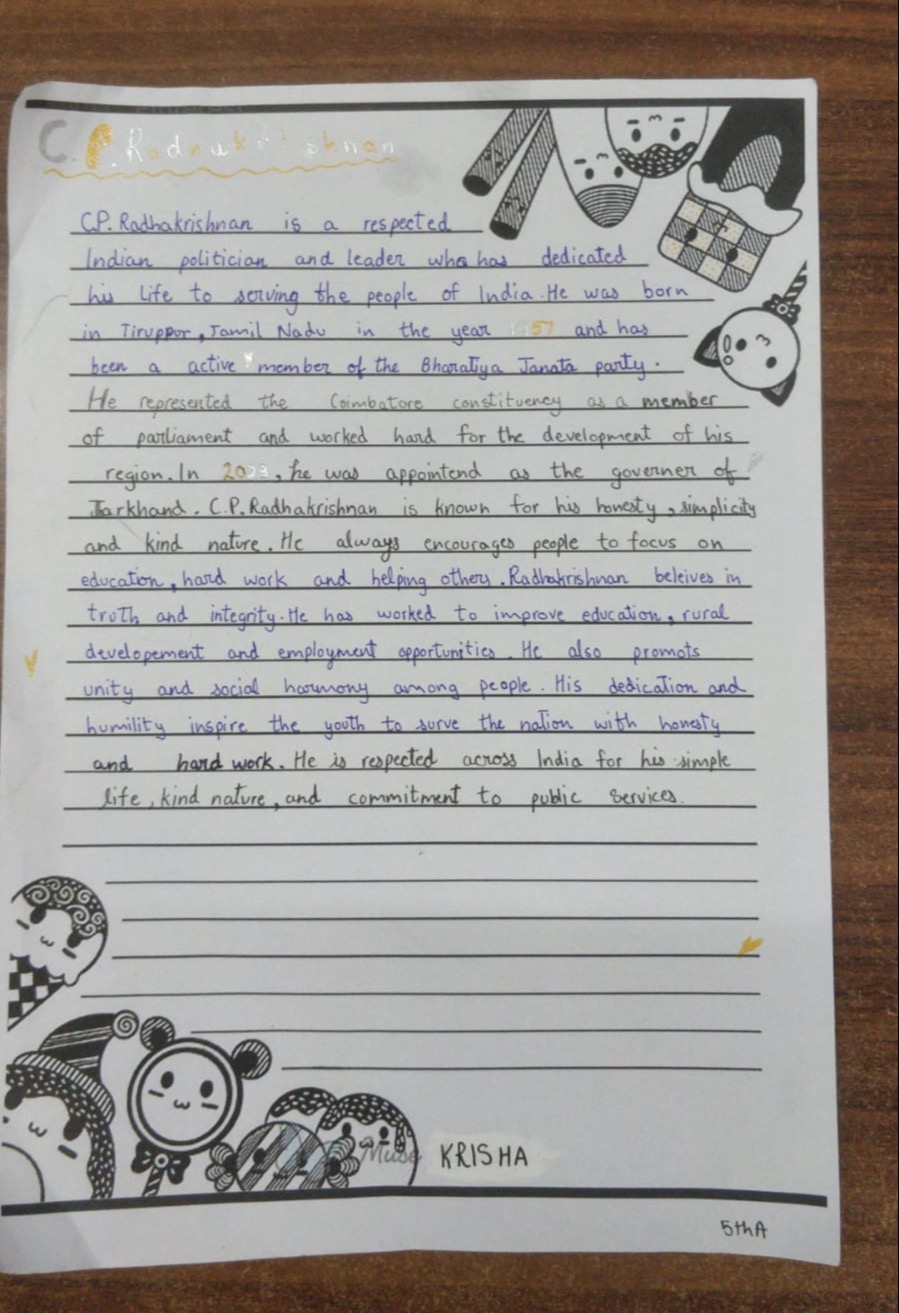 C.P.Radhakrishnan
C.P. Radhakrishnan is a respected
Indian politician and leader who has dedicated
his life to serving the people of India. He was born
in Tiruppor, Tamil Nadu in the year 1957 and has
been a active member of the Bharatiya Janata party.
He represented the Coimbatore constituency as a member
of parliament and worked hard for the development of his
region. In 2023, he was appointend as the governer of
Jharkhand. C.P. Radhakrishnan is known for his honesty, simplicity
and kind nature. He always encourages people to focus on
education, hard work and helping others. Radhakrishnan beleives in
truth and integrity. He has worked to improve education, rural
developement and employment opportunities. He also promots
unity and social harmony among people. His dedication and
humility inspire the youth to surve the nation with honesty
and hard work. He is respected across India for his simple
life, kind nature, and commitment to public services.
Muse KRISHA
5thA